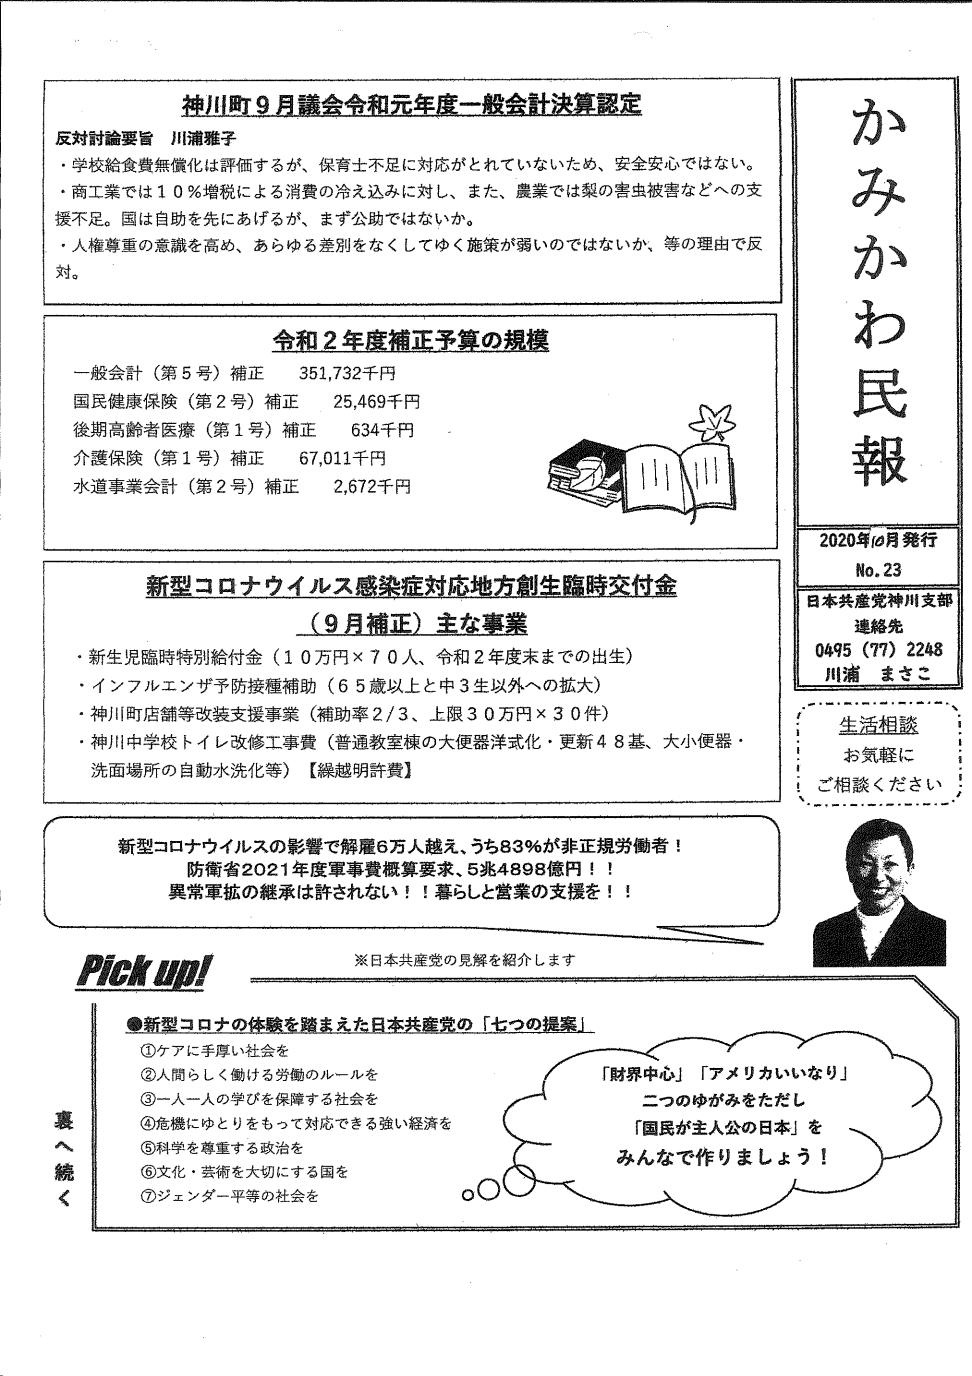 かみかわ民報
2020年10月発行
No.23
日本共産党神川支部
連絡先
0495（77）2248
川浦　まさこ
生活相談
お気軽に
ご相談ください
神川町９月議会令和元年度一般会計決算認定
反対討論要旨　川浦雅子
・学校給食費無償化は評価するが、保育士不足に対応がとれていないため、安全安心ではない。
・商工業では１０％増税による消費の冷え込みに対し、また、農業では梨の害虫被害などへの支
援不足。国は自助を先にあげるが、まず公助ではないか。
・人権尊重の意識を高め、あらゆる差別をなくしてゆく施策が弱いのではないか、等の理由で反
対。
令和２年度補正予算の規模
一般会計（第５号）補正　　351,732千円
国民健康保険（第２号）補正　　25,469千円
後期高齢者医療（第１号）補正　　634千円
介護保険（第１号）補正　　67,011千円
水道事業会計（第２号）補正　　2,672千円
新型コロナウイルス感染症対応地方創生臨時交付金
（９月補正）主な事業
・新生児臨時特別給付金（１０万円×７０人、令和２年度末までの出生）
・インフルエンザ予防接種補助（６５歳以上と中３生以外への拡大）
・神川町店舗等改装支援事業（補助率２/３、上限３０万円×３０件）
・神川中学校トイレ改修工事費（普通教室棟の大便器洋式化・更新４８基、大小便器・
洗面場所の自動水洗化等）【繰越明許費】
新型コロナウイルスの影響で解雇6万人越え、うち83%が非正規労働者！
防衛省2021年度軍事費概算要求、5兆4898億円！！
異常軍拡の継承は許されない！！暮らしと営業の支援を！！
Pick up!
※日本共産党の見解を紹介します
●新型コロナの体験を踏まえた日本共産党の「七つの提案」
①ケアに手厚い社会を
②人間らしく働ける労働のルールを
③一人一人の学びを保障する社会を
④危機にゆとりをもって対応できる強い経済を
⑤科学を尊重する政治を
⑥文化・芸術を大切にする国を
⑦ジェンダー平等の社会を
「財界中心」「アメリカいいなり」
二つのゆがみをただし
「国民が主人公の日本」を
みんなで作りましょう！
裏へ続く